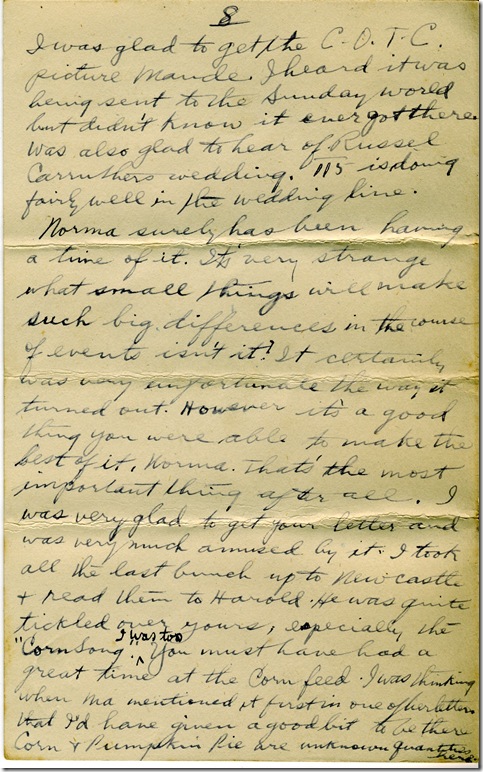 8
I was glad to get the C.O.T.C.
picture Maude. I heard it was
being sent to the Sunday world
but didn't know it ever got there.
Was also glad to hear of Russel
Carruthers wedding. 115 is doing
fairly well in the wedding line.
Norma surely has been having
a time of it. It's very strange
what small things will make
such big differences in the course
of events isn't it? It certainly
was very unfortunate the way it
turned out. However it's a good
thing you were able to make the
best of it, Norma. That's the most
important thing after all. I
was very glad to get your letter and
was very much amused by it. I took
all the last bunch up to Newcastle
+ read them to Harold. He was quite
tickled over yours, especially the
"Corn Song". I was too. You must have had a
great time at the Corn feed. I was thinking
when Ma mentioned it first in one of her letters
that I'd have given a good bit to be there
Corn & Pumpkin Pie are unknown quantities
here.